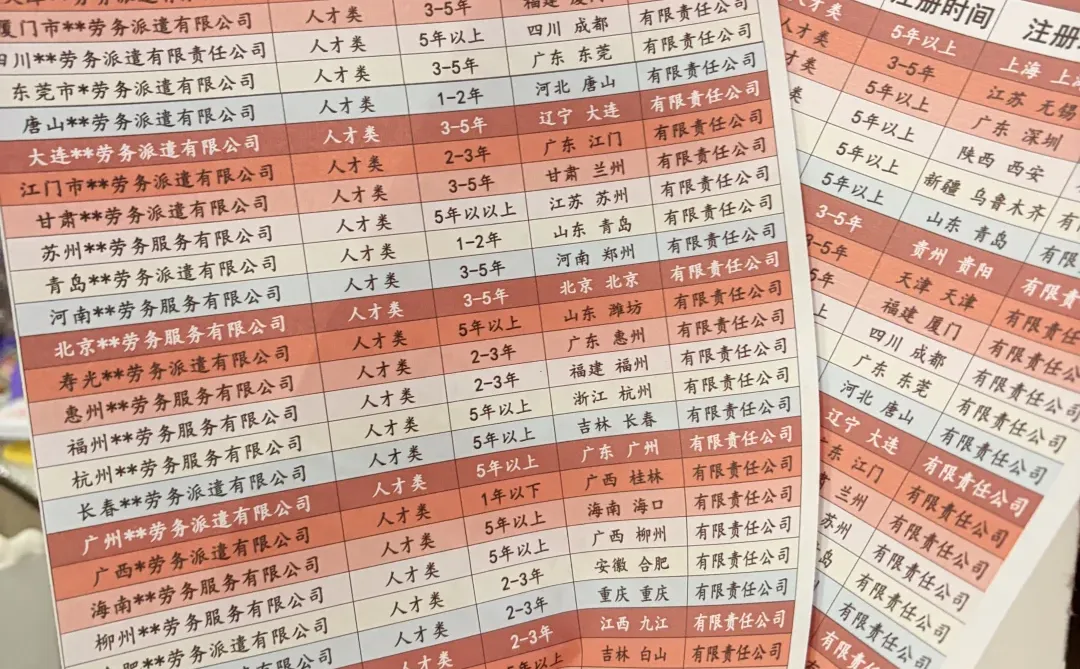 厦门市**劳务派遣有限公司 人才类 3-5年 福建 厦门 有限责任公司
四川**劳务派遣有限责任公司 人才类 5年以上 四川 成都 有限责任公司
东莞市*劳务派遣有限公司 人才类 3-5年 广东 东莞 有限责任公司
唐山**劳务派遣有限公司 人才类 1-2年 河北 唐山 有限责任公司
大连**劳务派遣有限公司 人才类 3-5年 辽宁 大连 有限责任公司
江门市**劳务派遣有限公司 人才类 2-3年 广东 江门 有限责任公司
甘肃**劳务派遣有限公司 人才类 3-5年 甘肃 兰州 有限责任公司
苏州**劳务服务有限公司 人才类 5年以以上 江苏 苏州 有限责任公司
青岛**劳务派遣有限公司 人才类 1-2年 山东 青岛 有限责任公司
河南**劳务服务有限公司 人才类 3-5年 河南 郑州 有限责任公司
北京**劳务服务有限公司 人才类 3-5年 北京 北京 有限责任公司
寿光**劳务派遣有限公司 人才类 5年以上 山东 潍坊 有限责任公司
惠州**劳务服务有限公司 人才类 2-3年 广东 惠州 有限责任公司
福州**劳务服务有限公司 人才类 2-3年 福建 福州 有限责任公司
杭州**劳务服务有限公司 人才类 5年以上 浙江 杭州 有限责任公司
长春**劳务派遣有限公司 人才类 5年以上 吉林 长春 有限责任公司
广州**劳务派遣有限公司 人才类 5年以上 广东 广州 有限责任公司
广西*劳务派遣有限公司 人才类 1年以下 广西 桂林 有限责任公司
海南**劳务服务有限公司 人才类 5年以上 海南 海口 有限责任公司
柳州**劳务服务有限公司 人才类 5年以上 广西 柳州 有限责任公司
劳务派遣有限公司 人才类 2-3年 安徽 合肥 有限责任公司
劳务服务有限公司 人才类 2-3年 重庆 重庆 有限责任公司
人才类 2-3年 江西 九江 有限责任公司
5年以上 吉林 白山 有限责任公司
注册时间 注册
人才类 5年以上 上海 上海
人才类 3-5年 江苏 无锡
才类 5年以上 广东 深圳
类 5年以上 陕西 西安
5年以上 新疆 乌鲁木齐 有
5年以上 山东 青岛 有限
3-5年 贵州 贵阳 有限责
3-5年 天津 天津 有限责任
5年 福建 厦门 有限责任公
上 四川 成都 有限责任公司
广东 东莞 有限责任公司
河北 唐山 有限责任公司
辽宁 大连 有限责任公司
东 江门 有限责任公司
兰州 有限责任公司
苏州 有限责任公司
岛 有限责任公司
有限责任公司
有限责任公司